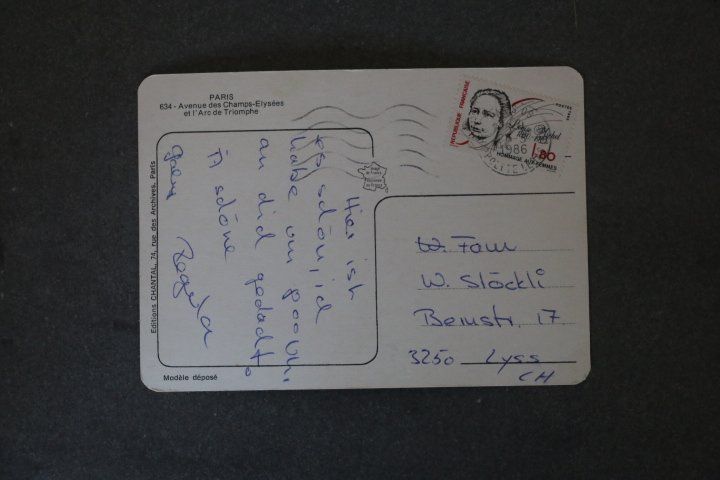 PARIS
634 - Avenue des Champs-Elysées
et l'Arc de Triomphe
Editions CHANTAL, 74, rue des Archives, Paris
Modèle déposé
Hier ist
es schön, ich
habe
an dich gedacht.
A schöne
Regula
REPUBLIQUE FRANÇAISE
POSTES
1986
1,80
HOMMAGE AUX FEMMES
W. Fam
W. Stöckli
Bernstr. 17
3250 Lyss
CH